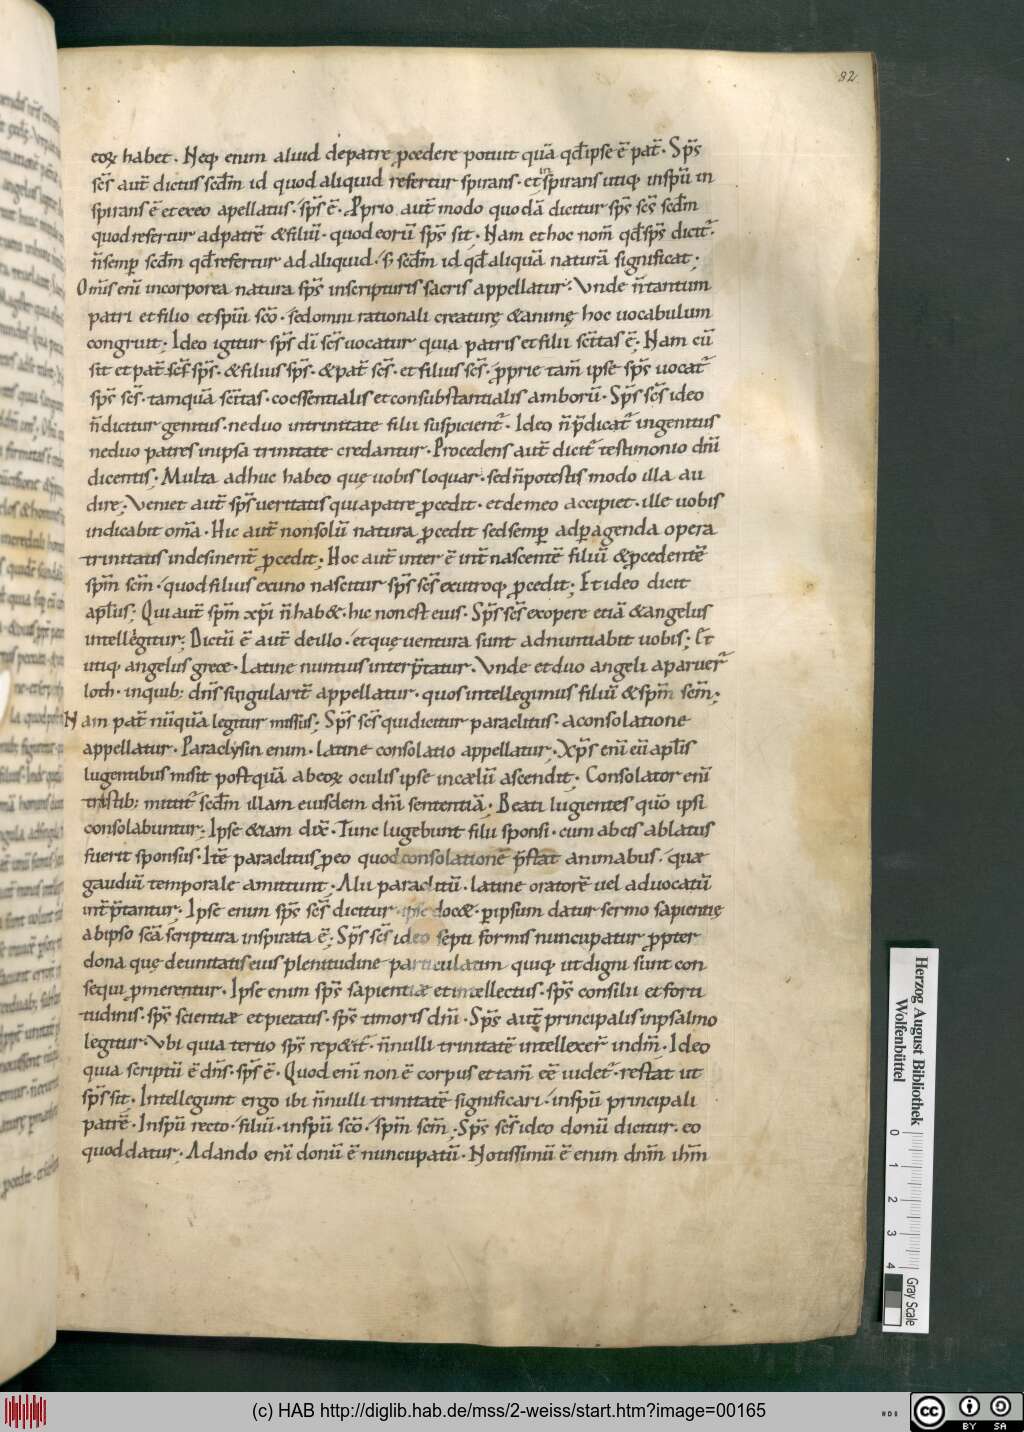 82
eoꝝ habet. Neq; enim aliud depatre ꝓcedere potuit quā qđ ipse ē pat̄. Sp̄s
sc̄s aut̄ dictus scđm id quod aliquid refertur spirans. et inspirans utiq; inspū in
spirans ē et exeo apellatus. sp̄s ē. Ꝓprio aut̄ modo quodā dicitur sp̄s sc̄s scđm
quod refertur adpatrē &filiū. quod eorū sp̄s sit. Nam et hoc nom̄ qđ sp̄s dicit̄.
n̄ semꝑ scđm qđ refertur ad aliquid. s; scđm id qđ aliquā naturā significat;
Om̄is enī incorporea natura sp̄s inscripturis sacris appellatur. Vnde n̄ tantum
patri et filio et spūi sc̄o. sed omni rationali creaturę &animę hoc uocabulum
congruit; Ideo igitur sp̄s dī sc̄s uocatur quia patris et filii sc̄itas ē; Nam cū
sit et pat̄ sc̄s sp̄s. &filius sp̄s. &pat̄ sc̄s. et filius sc̄s. ꝓprie tam̄ ipse sp̄s uocat̄
sp̄s sc̄s. tamquā sc̄itas. coessentialis et consubstantialis amborū. Sp̄s sc̄s ideo
n̄ dicitur genitus. ne duo intrinitate filii suspicient̄. Ideo n̄ p̄dicat̄ ingenitus
ne duo patres inipsa trinitate credantur. Procedens aut̄ dicit̄ testimonio dn̄i
dicentis; Multa adhuc habeo quę uobis loquar. sed n̄ potestis modo illa au
dire; Veniet aut̄ sp̄s ueritatis qui apatre ꝓcedit. et demeo accipiet. ille uobis
indicabit om̄a. Hic aut̄ nonsolū natura ꝓcedit sed semꝑ adꝑagenda opera
trinitatis indesinent̄ ꝓcedit; Hoc aut̄ inter ē int̄ nascentē filiū &ꝓcedentē
sp̄m sc̄m. quod filius exuno nascitur sp̄s sc̄s exutroq; ꝓcedit; Et ideo dicit
apl̄us; Qui aut̄ sp̄m xp̄i n̄ hab&. hic non est eius. Sp̄s sc̄s exopere etiā &angelus
intellegitur; Dictū ē aut̄ deillo. et quę uentura sunt adnuntiabit uobis; Et
utiq; angelus grece. Latine nuntius interp̄tatur. Vnde et duo angeli aparuer̄
loth. inquib; dn̄s singularit̄ appellatur. quos intellegimus filiū &sp̄m sc̄m;
Nam pat̄ nūquā legitur missus; Sp̄s sc̄s qui dicitur paraclitus. aconsolatione
appellatur. Paraclysin enim. latine consolatio appellatur; Xp̄s enī eū apl̄is
lugentibus misit postquā ab eoꝝ oculis ipse incælū ascendit. Consolator enī
tristib; mittit̄ scđm illam eiusdem dn̄i sententiā. Beati lugientes quō ipsi
consolabuntur; Ipse &iam dix̄. Tunc lugebunt filii sponsi. cum abeis ablatus
fuerit sponsus. Itē paraclitus ꝓeo quod consolationē p̄stat animabus. quæ
gaudiū temporale amittunt; Alii paraclitū. latine oratorē uel aduocatū
int̄p̄tantur. Ipse enim sp̄s sc̄s dicitur. ipse doc&. ꝑ ipsum datur sermo sapientię
abipso sc̄a scriptura inspirata ē; Sp̄s sc̄s ideo septi formis nuncupatur ꝓpter
dona quę deunitatis eius plenitudine particulatim quiq; ut digni sunt con
sequi ꝓmerentur. Ipse enim sp̄s sapientiæ et intellectus. sp̄s consilii et forti
tudinis. sp̄s scientiæ et pietatis. sp̄s timoris dn̄i. Sp̄s aut̄ principalis inpsalmo
legitur. Vbi quia tertio sp̄s rep&it̄. n̄nulli trinitatē intellexer̄ indm̄. Ideo
quia scriptū ē dn̄s. sp̄s ē. Quod enī non ē corpus et tam̄ eē uidet̄. restat ut
sp̄s sit. Intellegunt ergo ibi n̄nulli trinitatē significari. inspū principali
patrē. Inspū recto. filiū. inspū sc̄o. sp̄m sc̄m. Sp̄s sc̄s ideo donū dicitur. eo
quod datur; Adando enī donū ē nuncupatū. Notissimū ē enim dn̄m ihm̄
Herzog August Bibliothek
Wolfenbüttel
0 1 2 3 4
Gray Scale
(c) HAB http://diglib.hab.de/mss/2-weiss/start.htm?image=00165
cc BY SA